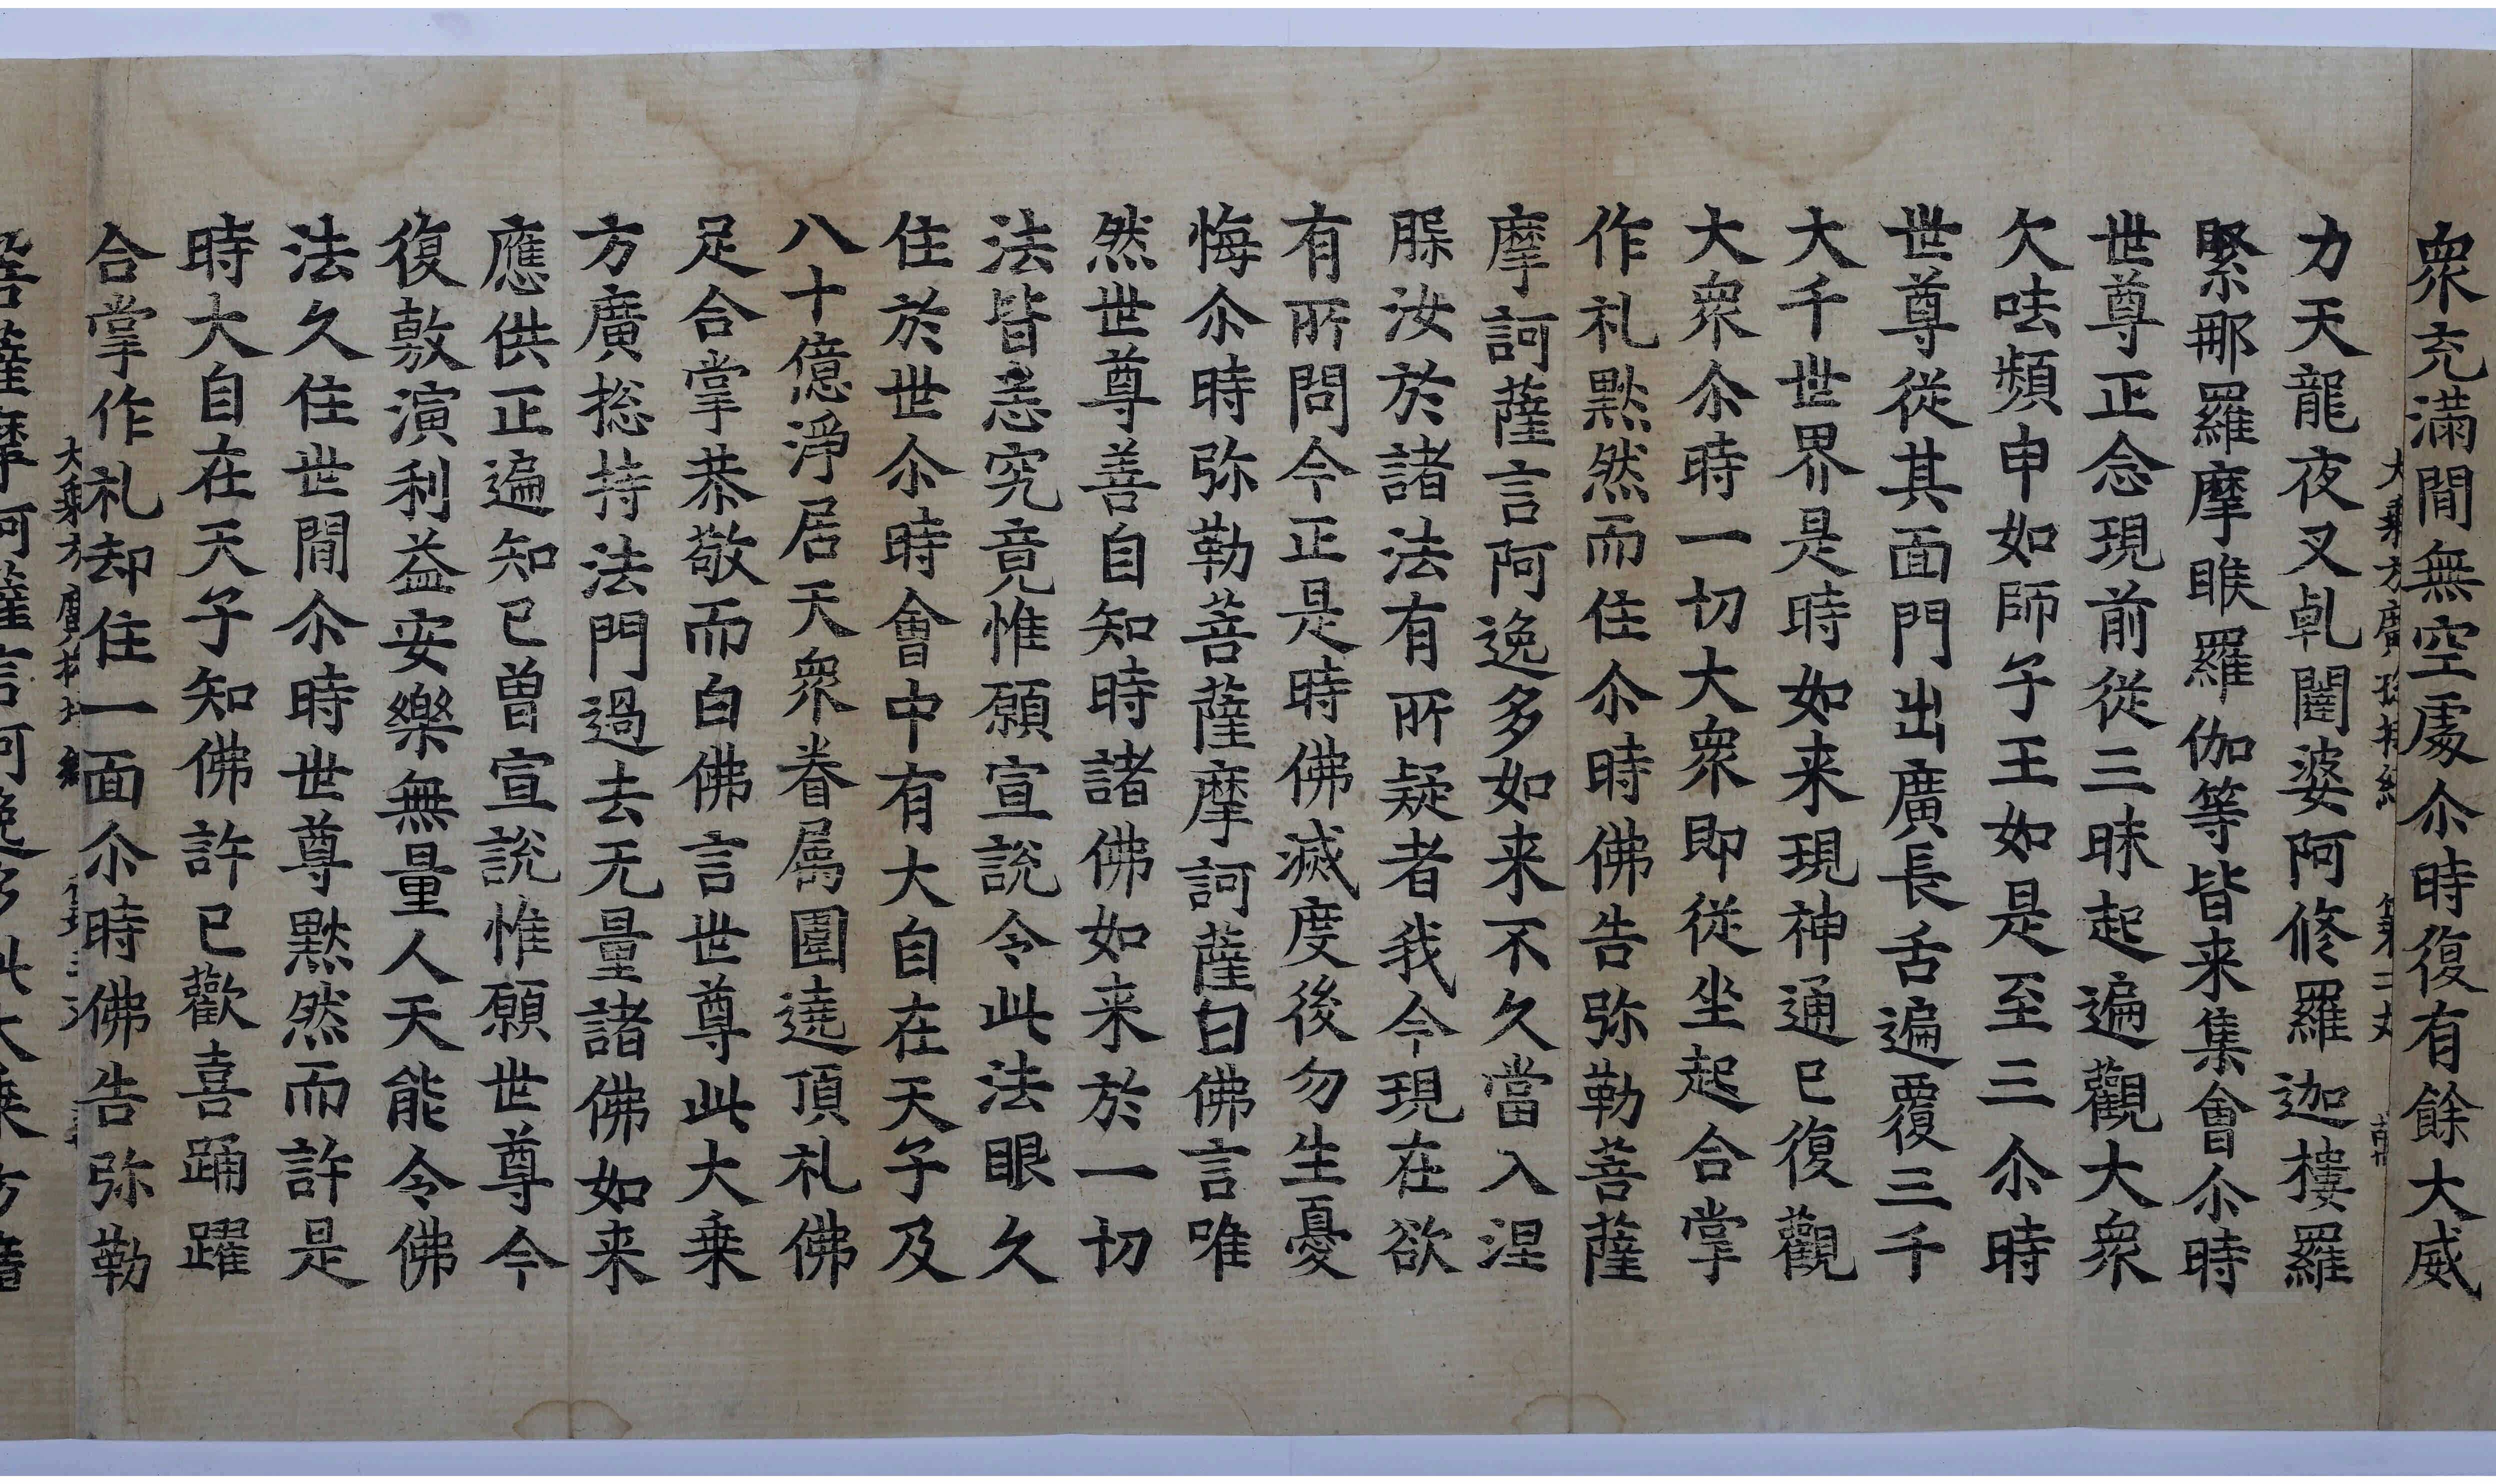 衆充滿閒無空處尒時復有餘大威
大乗方廣揔持經 第二丈
力天龍夜叉乹闥婆阿修羅迦樓羅
緊那羅摩睺羅伽等皆来集會尒時
世尊正念現前從三昧起遍觀大衆
欠呿頻申如師子王如是至三尒時
世尊從其面門出廣長舌遍覆三千
大千世界是時如来現神通已復觀
大衆尒時一切大衆即從坐起合掌
作礼黙然而住尒時佛告弥勒菩薩
摩訶薩言阿逸多如来不久當入涅
脲汝於諸法有所疑者我今現在欲
有所問今正是時佛滅度後勿生憂
悔尒時弥勒菩薩摩訶薩白佛言唯
然世尊善自知時諸佛如来於一切
法皆悉究竟惟願宣說令此法眼久
住於世尒時會中有大自在天子及
八十億淨居天衆眷屬圍遶頂礼佛
足合掌恭敬而白佛言世尊此大乗
方廣揔持法門過去无量諸佛如来
應供正遍知已曾宣說惟願世尊今
復敷演利益安樂無量人天能令佛
法久住世閒尒時世尊黙然而許是
時大自在天子知佛許已歡喜踊躍
合掌作礼却住一面尒時佛告弥勒
大乗方廣揔持經
菩薩摩訶薩言阿逸多此大乗方廣